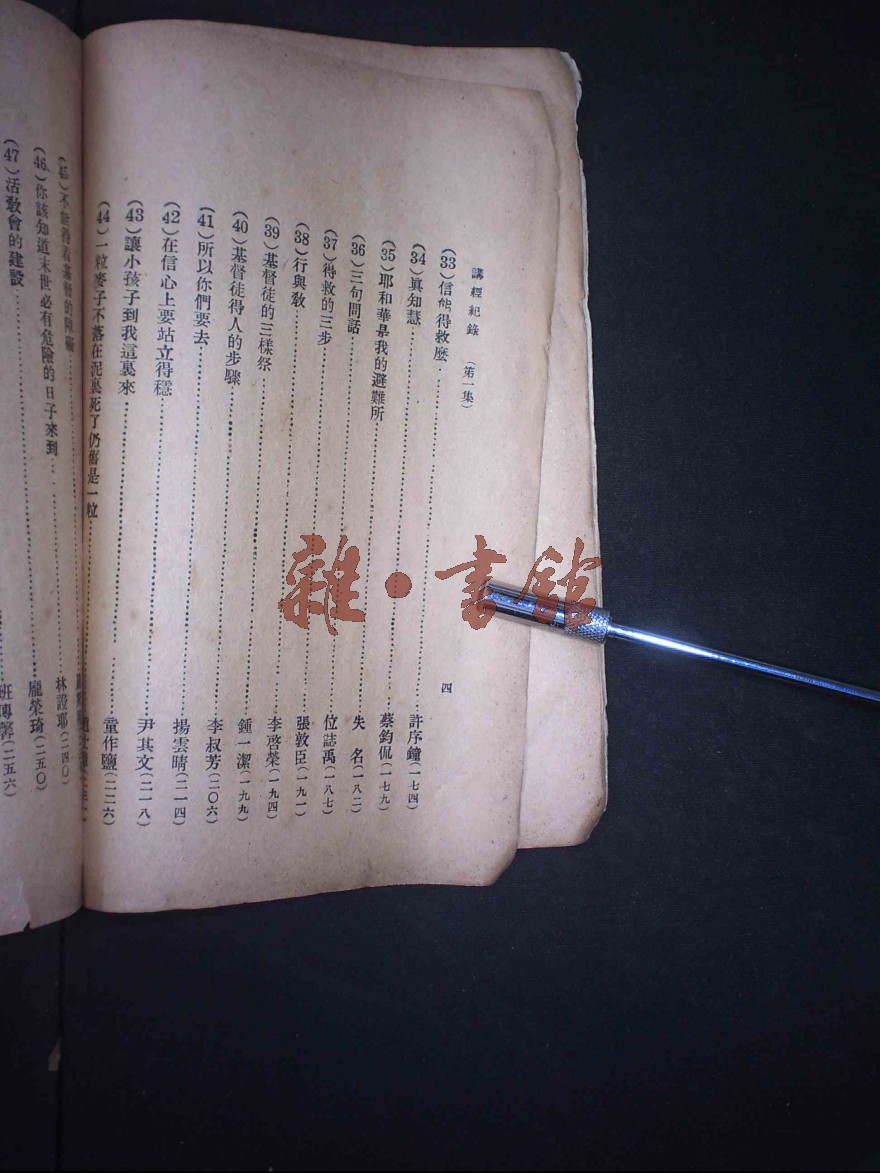 講經紀錄 (第一集) 四
(33)信能得救麽……許序鐘(一七四)
(34)眞知慧……蔡鈞侃(一七九)
(35)耶和華是我的避難所……失名(一八二)
(36)三句問話……位誌禹(一八七)
(37)得救的三步……張敦臣(一九一)
(38)行與敎……李啓榮(一九四)
(39)基督徒的三樣祭……鍾一潔(一九九)
(40)基督徒得人的步驟……李叔芳(二〇六)
(41)所以你們要去……揚雲晴(二一四)
(42)在信心上要站立得穩……尹其文(二一八)
(43)讓小孩子到我這裏來……童作鹽(二二六)
(44)一粒麥子不落在泥裏死了仍舊是一粒……
(45)不能得着基督的障礙……
(46)你該知道末世必有危險的日子來到……林證耶(二四〇)
(47)活敎會的建設……龐榮琦(二五〇)
(二五六)
雜·書館